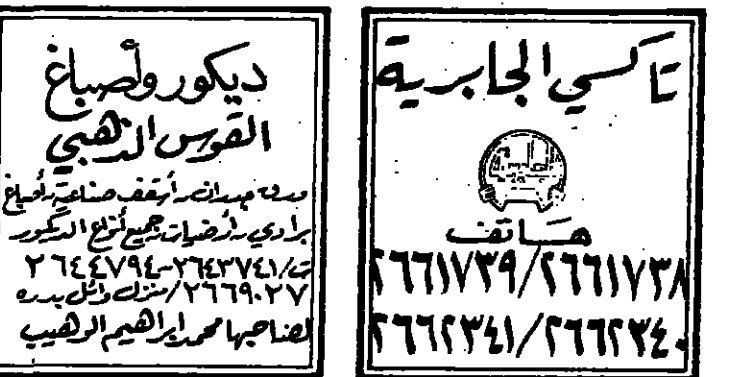 تاكسي الجابرية
هاتف
٢٦٦١٧٣٩/٢٦٦١٧٣٨
٢٦٦٢٣٤١/٢٦٦٢٣٤٠
ديكور وأصباغ
القوس الذهبي
ورق جدران، أسقف صناعية، أصباغ
برادي، أرضيات، جميع أنواع الديكور
ت/٢٦٤٣٧٤١-٢٦٤٤٧٩٤
٢٦٦٩٠٢٧/منزل وائل بدره
لصاحبها محمد ابراهيم الوهيب